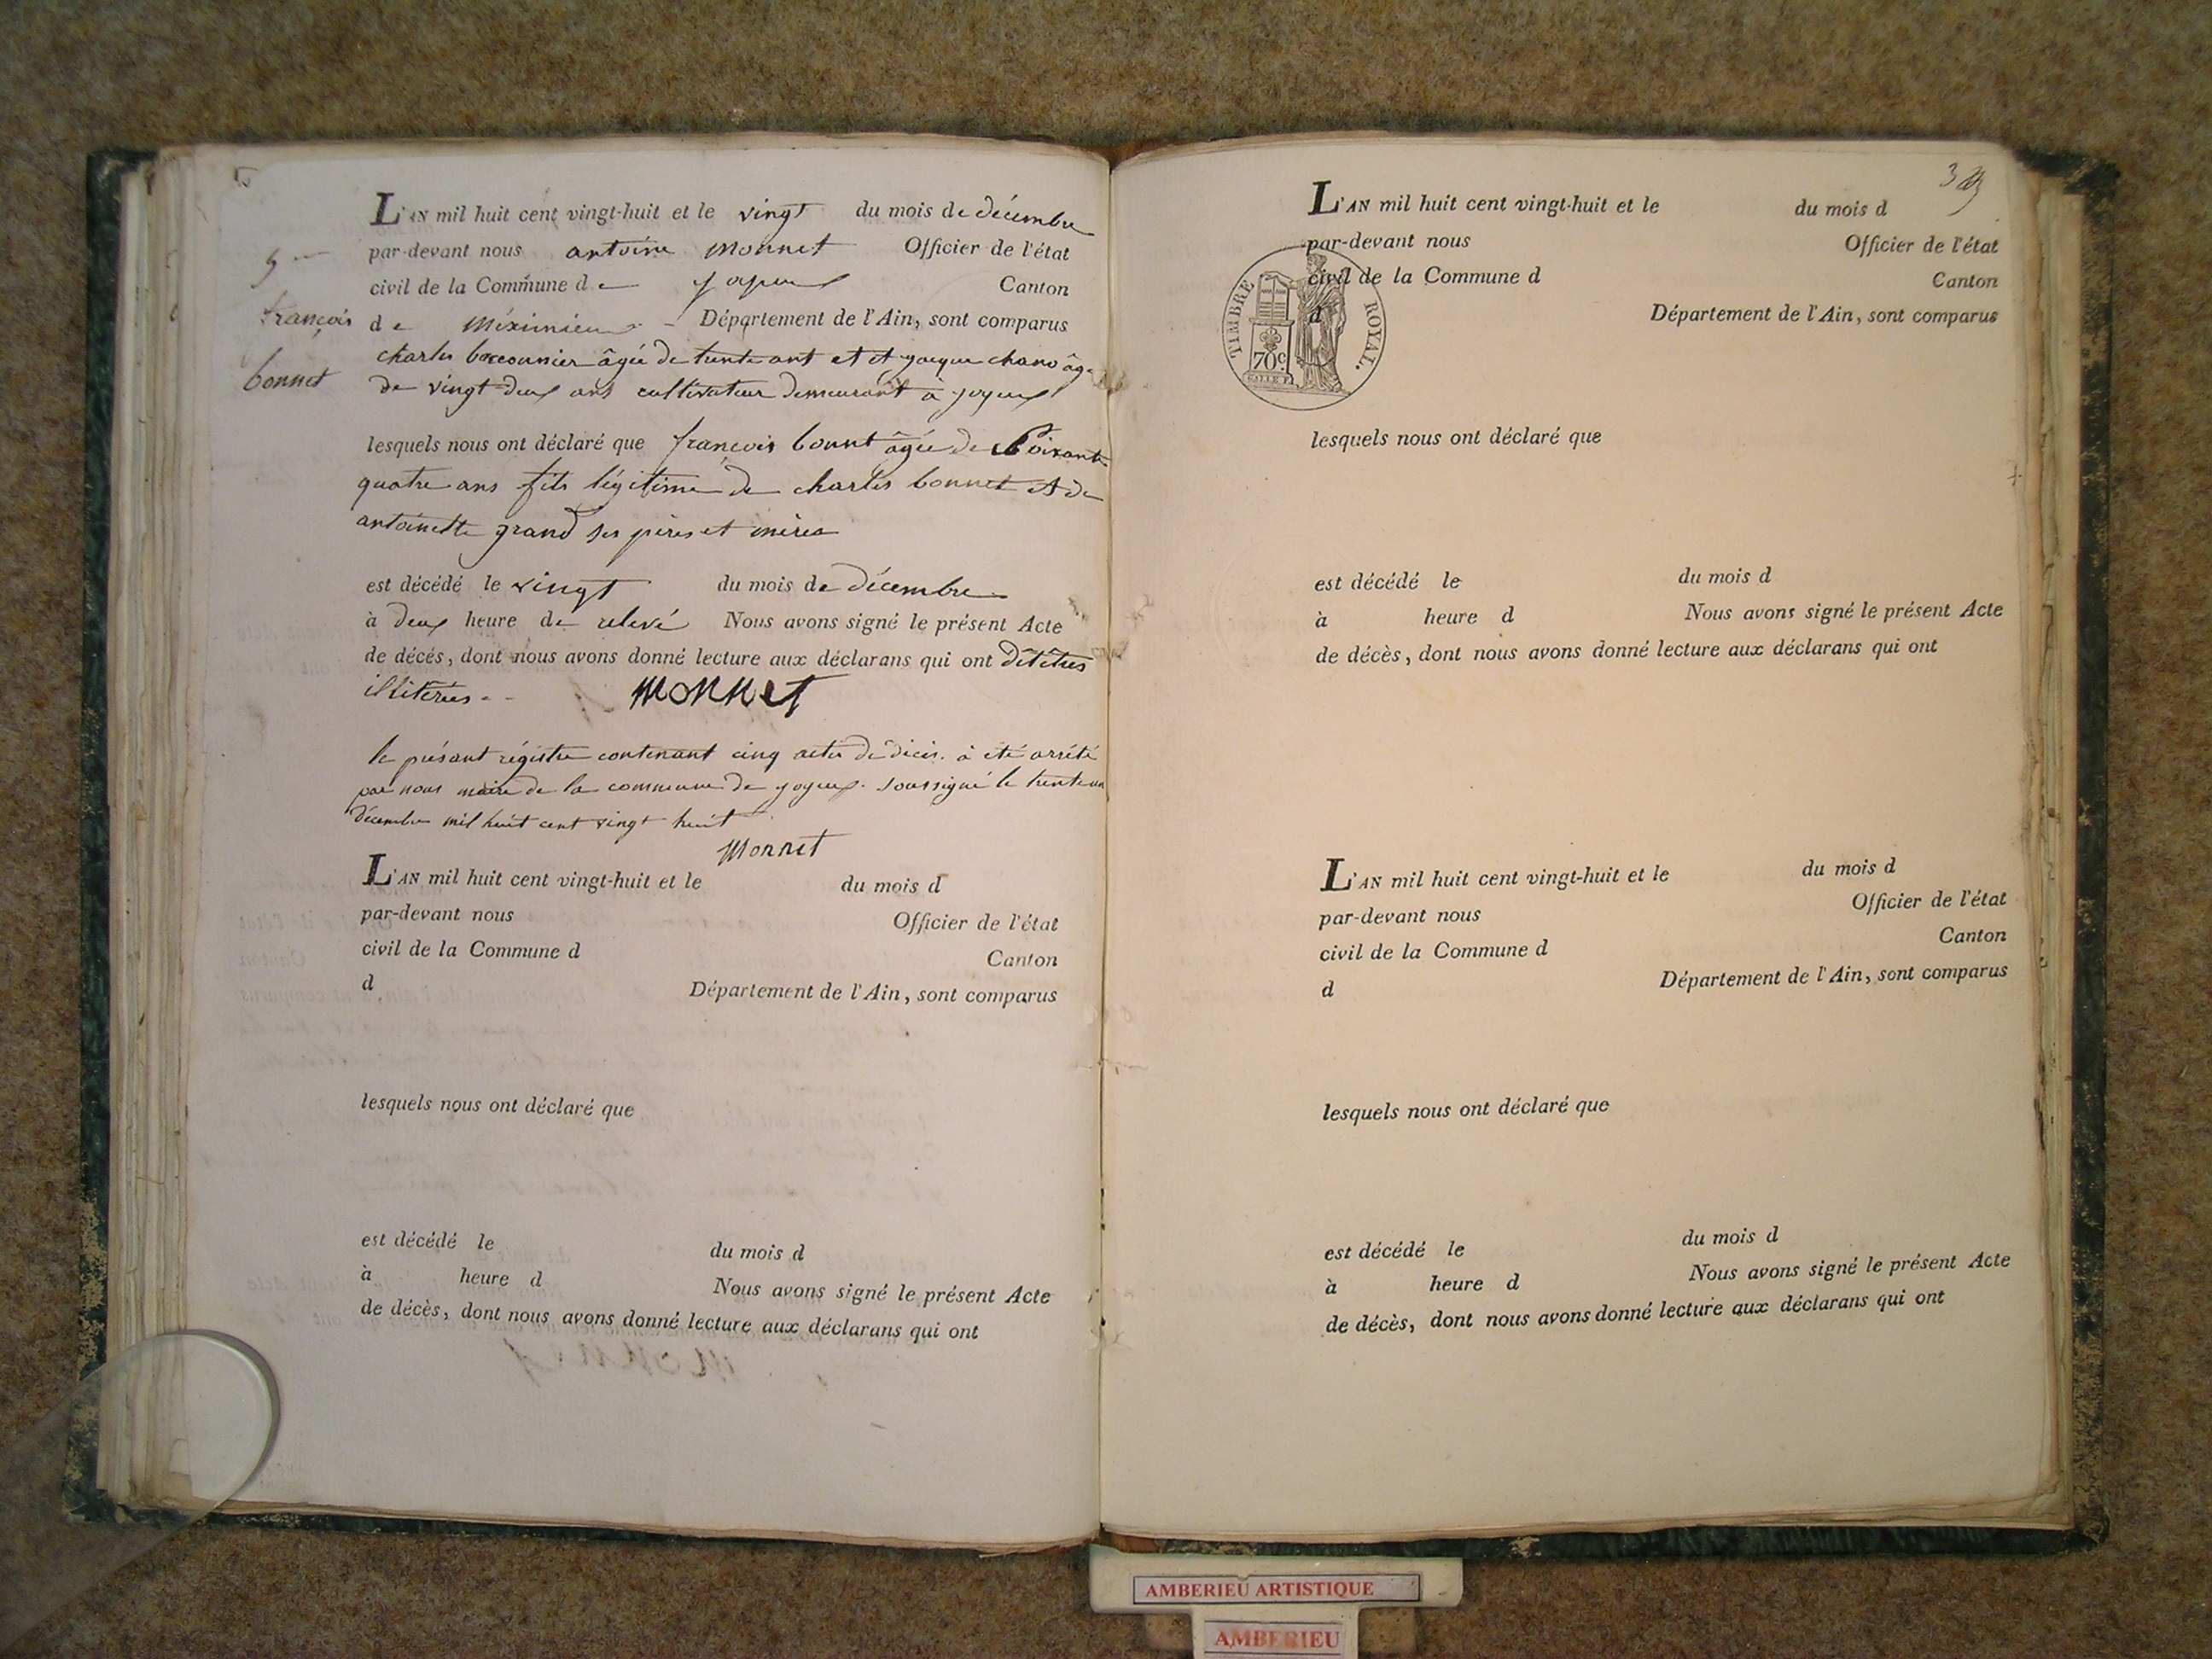 L'AN mil huit cent vingt-huit et le vingt du mois de décembre
par-devant nous antoine monnet Officier de l'état
5
civil de la Commune de joyeux Canton
françois
de méximieux Département de l'Ain, sont comparus
charles âgée de trente ans et et jacque chano âgé
bonnet
de vingt-deux ans cultivateur demeurant à joyeux
lesquels nous ont déclaré que françois bonnt âgée de soixante
quatre ans fils légitime de charles bonnet et de
antoinette grand ses pères et mères
est décédé le vingt du mois de décembre
à deux heure de relevé Nous avons signé le présent Acte
de décés, dont nous avons donné lecture aux déclarans qui ont dit êtres
illitérées monnet
le présant régistre contenant cinq actes de décès. à été arrété
par nous maire de la commune de joyeux. soussigné le trente un
décembre mil huit cent vingt huit
monnet
L'AN mil huit cent vingt-huit et le du mois d
par-devant nous Officier de l'état
civil de la Commune d Canton
d Département de l'Ain, sont comparus
lesquels nous ont déclaré que
est décédé le du mois d
à heure d Nous avons signé le présent Acte
de décès, dont nous avons donné lecture aux déclarans qui ont
L'AN mil huit cent vingt-huit et le du mois d
par-devant nous Officier de l'état
civil de la Commune d Canton
d Département de l'Ain, sont comparus
TIMBRE ROYAL.
70c
lesquels nous ont déclaré que
est décédé le du mois d
à heure d Nous avons signé le présent Acte
de décès, dont nous avons donné lecture aux déclarans qui ont
L'AN mil huit cent vingt-huit et le du mois d
par-devant nous Officier de l'état
civil de la Commune d Canton
d Département de l'Ain, sont comparus
lesquels nous ont déclaré que
est décédé le du mois d
à heure d Nous avons signé le présent Acte
de décès, dont nous avons donné lecture aux déclarans qui ont
AMBERIEU ARTISTIQUE
AMBERIEU